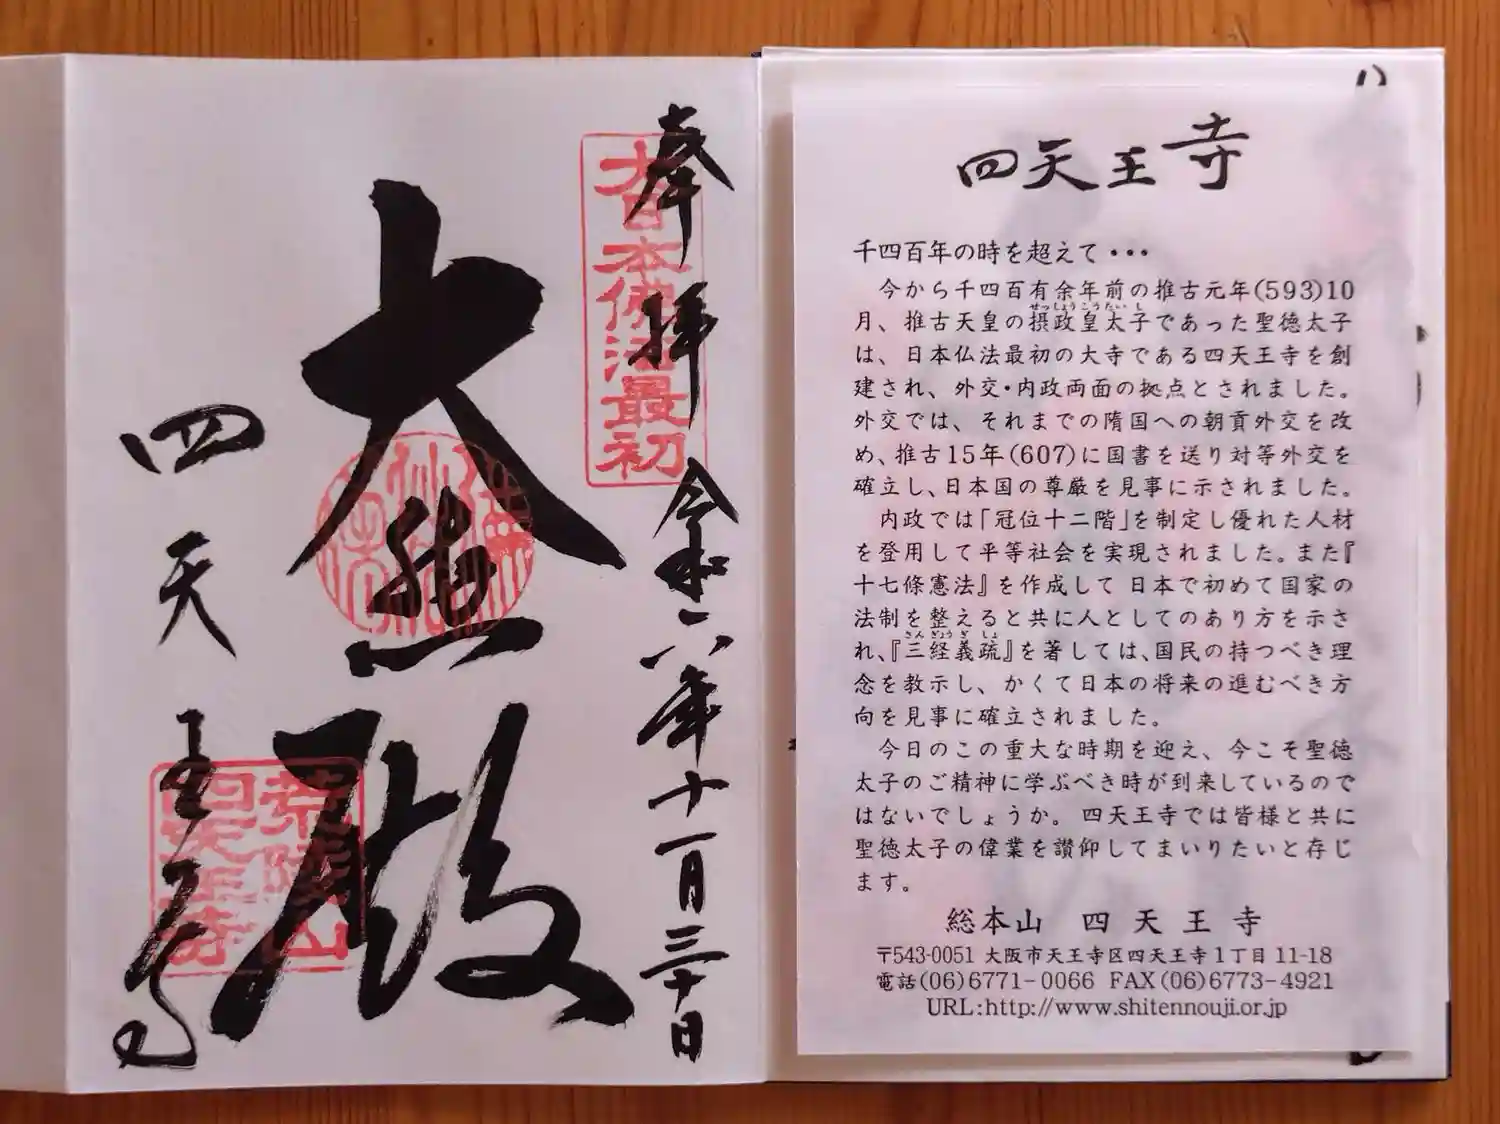 奉拝
令和六年十一月三十日
大日本佛法最初
大慈殿
四天王寺
荒陵山
四天王寺
四天王寺
千四百年の時を超えて・・・
今から千四百有余年前の推古元年(593)10
せっしょうこうたいし
月、推古天皇の摂政皇太子であった聖徳太子
は、日本仏法最初の大寺である四天王寺を創
建され、外交・内政両面の拠点とされました。
外交では、それまでの隋国への朝貢外交を改
め、推古15年(607)に国書を送り対等外交を
確立し、日本国の尊厳を見事に示されました。
内政では「冠位十二階」を制定し優れた人材
を登用して平等社会を実現されました。また『
十七條憲法』を作成して 日本で初めて国家の
法制を整えると共に人としてのあり方を示さ
さんぎょうぎしょ
れ、『三経義疏』を著しては、国民の持つべき理
念を教示し、かくて日本の将来の進むべき方
向を見事に確立されました。
今日のこの重大な時期を迎え、今こそ聖徳
太子のご精神に学ぶべき時が到来しているので
はないでしょうか。四天王寺では皆様と共に
聖徳太子の偉業を讃仰してまいりたいと存じ
ます。
総本山 四天王寺
〒543-0051 大阪市天王寺区四天王寺1丁目11-18
電話(06)6771-0066 FAX(06)6773-4921
URL:http://www.shitennouji.or.jp